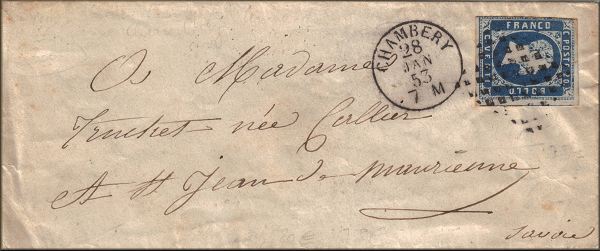 CHAMBERY
28
JAN
53
7 M
FRANCO
C. POSTE 20
BOLLO
A Madame
Truchet née Collier
A St Jean de Maurienne
Savoie